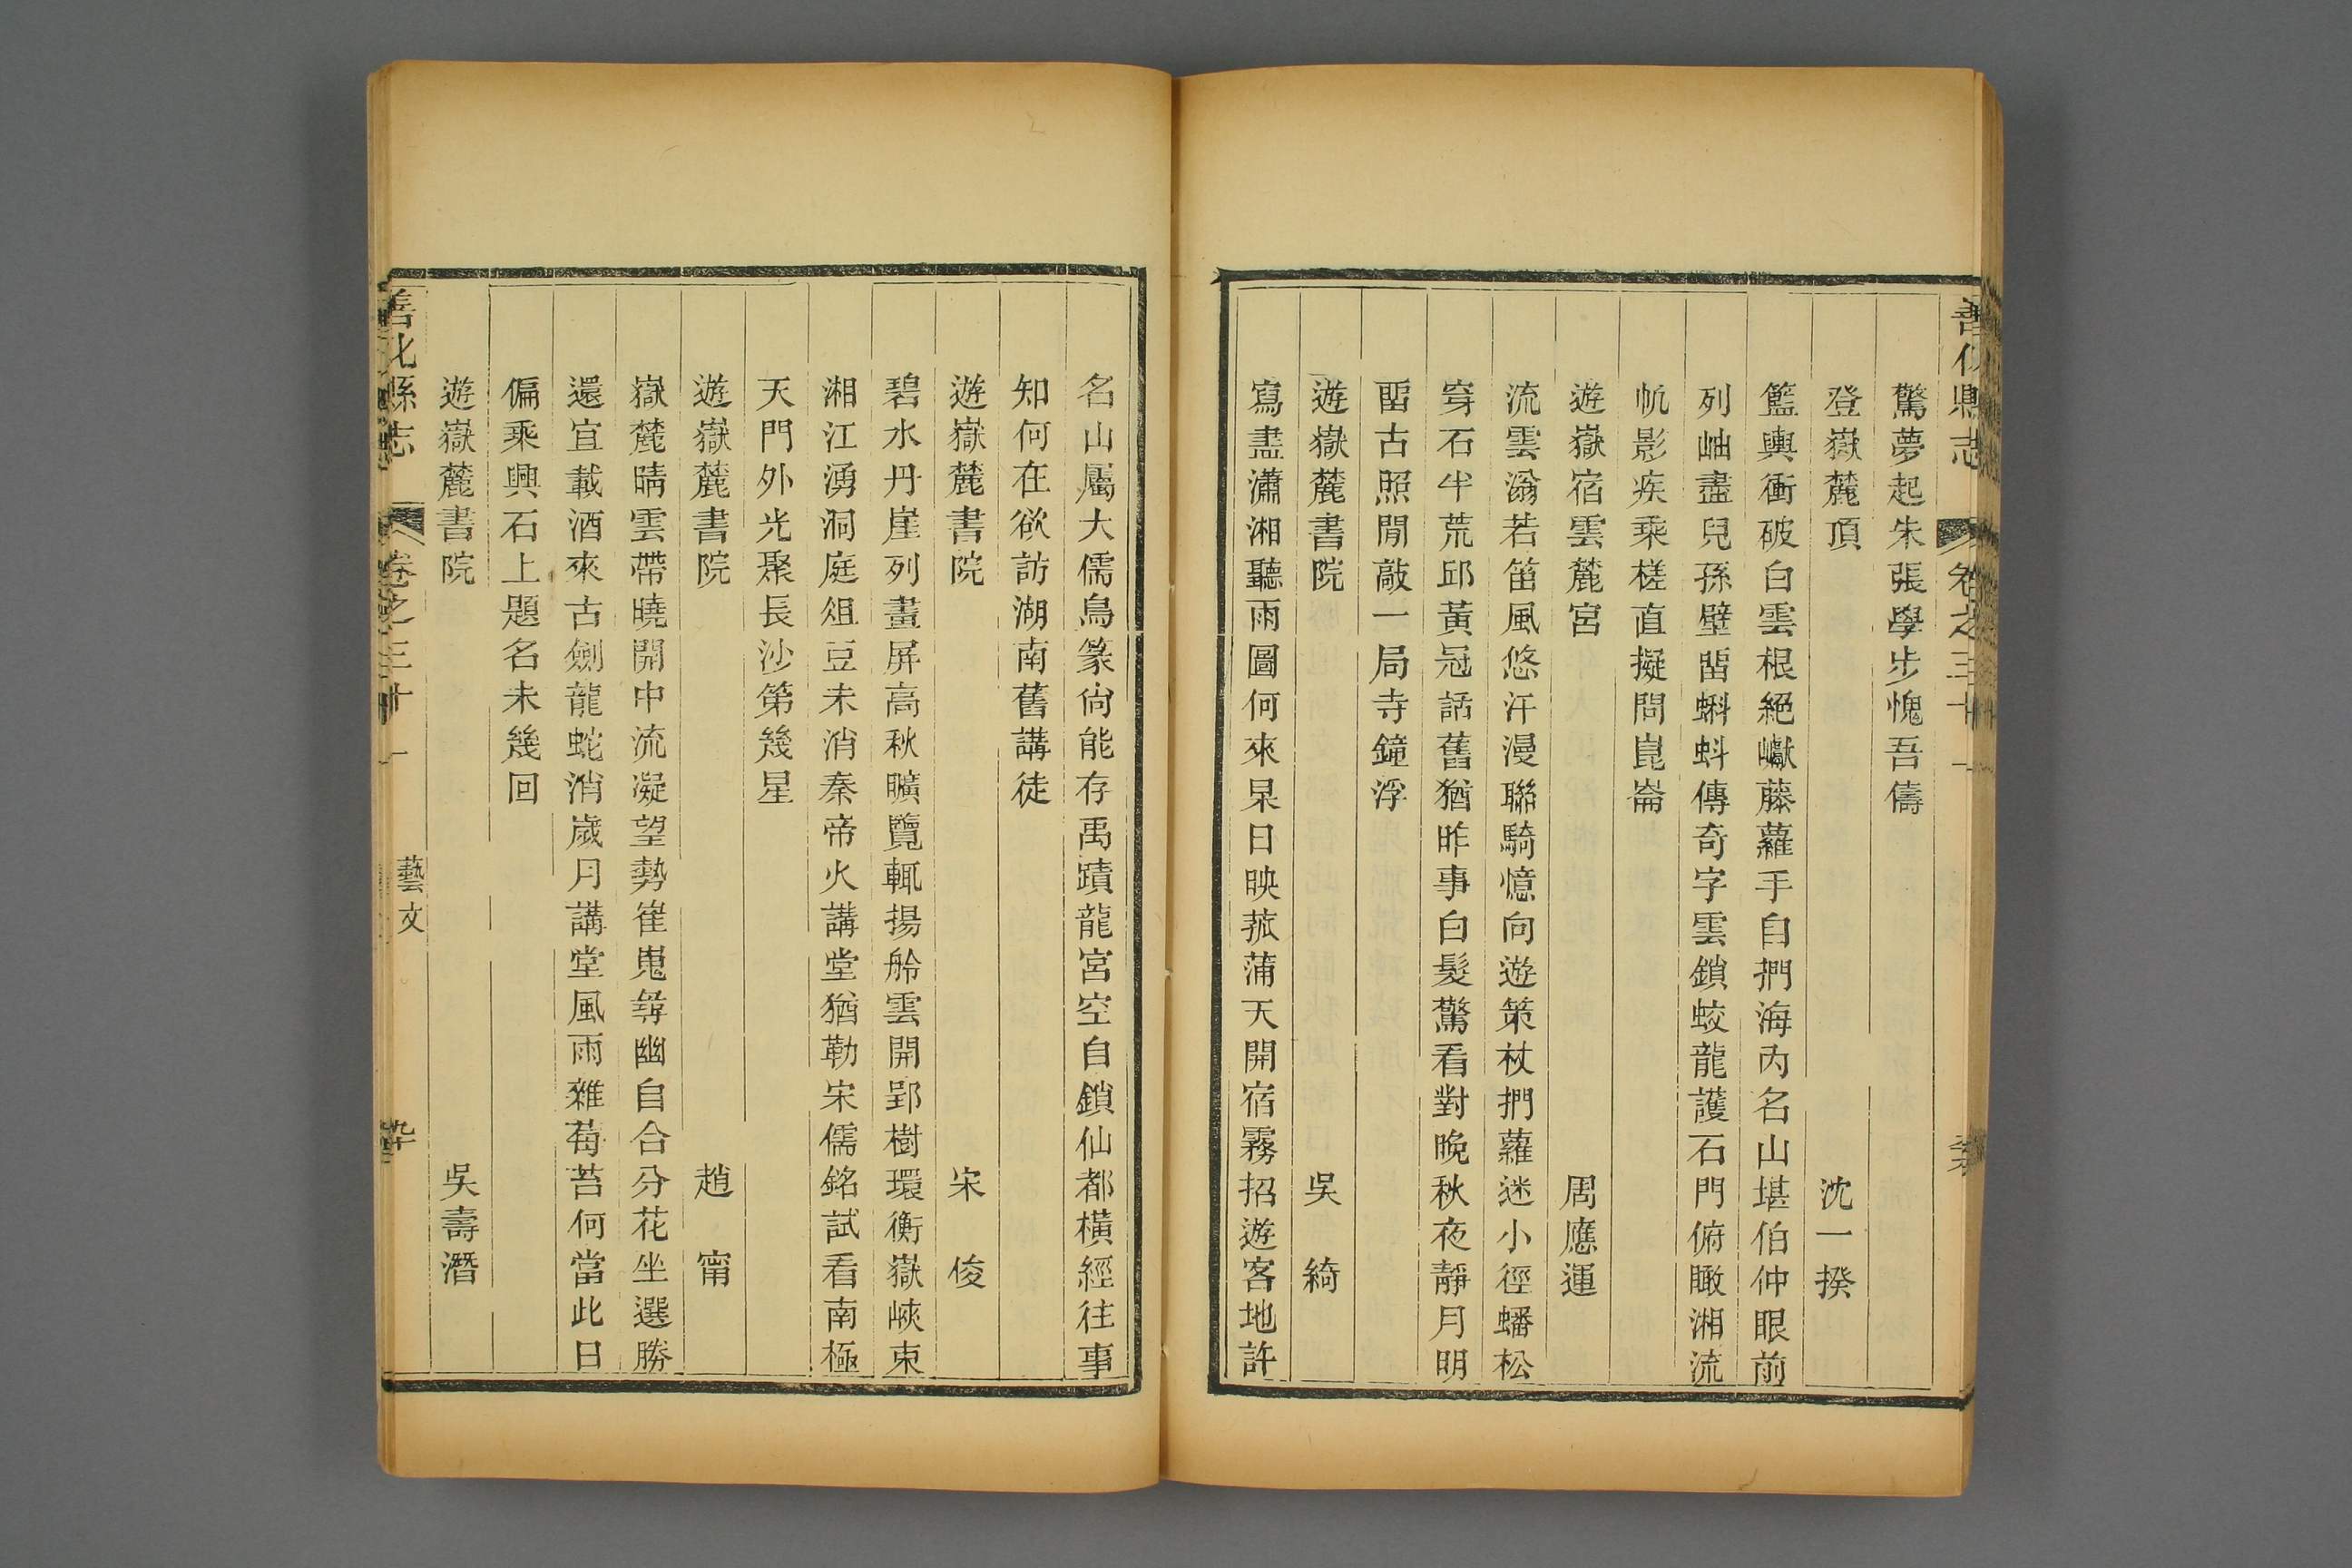 善化縣志 卷之三十一
驚夢起朱張學步愧吾儔
登嶽麓頂 沈一揆
籃輿衝破白雲根絕巘藤蘿手自捫海內名山堪伯仲眼前
列岫盡兒孫壁留蝌蚪傳奇字雲鎖蛟龍護石門俯瞰湘流
帆影疾乘槎直擬問崑崙
遊嶽宿雲麓宮 周應運
流雲滃若笛風悠汗漫聯騎憶向遊策杖捫蘿迷小徑蟠松
穿石半荒邱黃冠話舊猶昨事白髮驚看對晚秋夜靜月明
畱古照閒敲一局寺鐘浮
遊嶽麓書院 吳綺
寫盡瀟湘聽雨圖何來杲日映菰蒲天開宿霧招遊客地許
名山屬大儒鳥篆尙能存禹蹟龍宮空自鎖仙都橫經往事
知何在欲訪湖南舊講徒
遊嶽麓書院 宋俊
碧水丹崖列畫屏高秋曠覽輒揚舲雲開郢樹環衡嶽峽束
湘江湧洞庭俎豆未消秦帝火講堂猶勒宋儒銘試看南極
天門外光聚長沙第幾星
遊嶽麓書院 趙甯
嶽麓晴雲帶曉開中流凝望勢崔嵬尋幽自合分花坐選勝
還宜載酒來古劍龍蛇消歲月講堂風雨雜莓苔何當此日
偏乘興石上題名未幾回
遊嶽麓書院 吳壽潛
善化縣志 卷之三十一 藝文